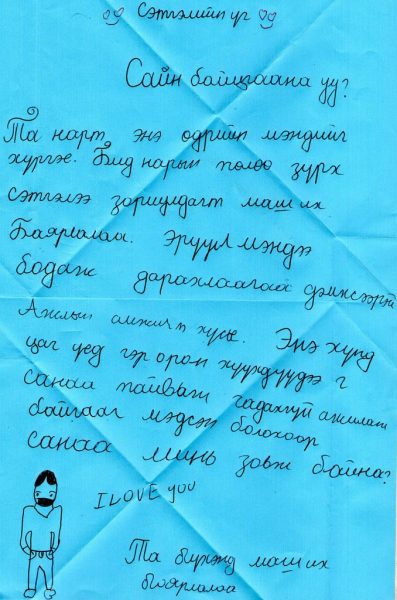 Сэтгэлийн үг
Сайн байцгаана уу?
Та нарт энэ өдрийн мэндийг
хүргэе. Бид нарын төлөө зүрх
сэтгэлээ зориулдагт маш их
Баярлалаа. Эрүүл мэндээ
бодож дарахлаагаа дэмжээрэй
Ажлын амжилт хүсье. Энэ хүнд
цаг үед гэр орон хүүхдүүдээ
санаа тавьж чадахгүй ажиллаж
байгааг мэдсэн болохоор
санаа минь зовж байна.
I LOVE you
Та бүхэнд маш их
баярлалаа